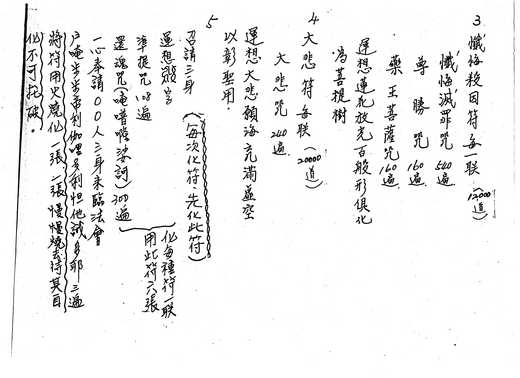 3 懺悔殺因符每一联(12000道)
懺悔滅罪咒 540遍
尊勝咒 160遍
藥王菩薩咒 160遍
運想蓮花放光百般形俱化
為菩提樹
4 大悲符每联(20000道)
大悲咒 240遍
運想大悲願海充滿虛空
以彰聖用。
5
召請三身(每次化符,先化此符)
運想
準提咒 108遍 化每種符一联
還魂咒(唵 娑訶)300遍 用此符六張
一心奉請○○人三身來臨法會
三遍
將符用火燒化一張一張慢慢燒去待其自
化不可扥破。